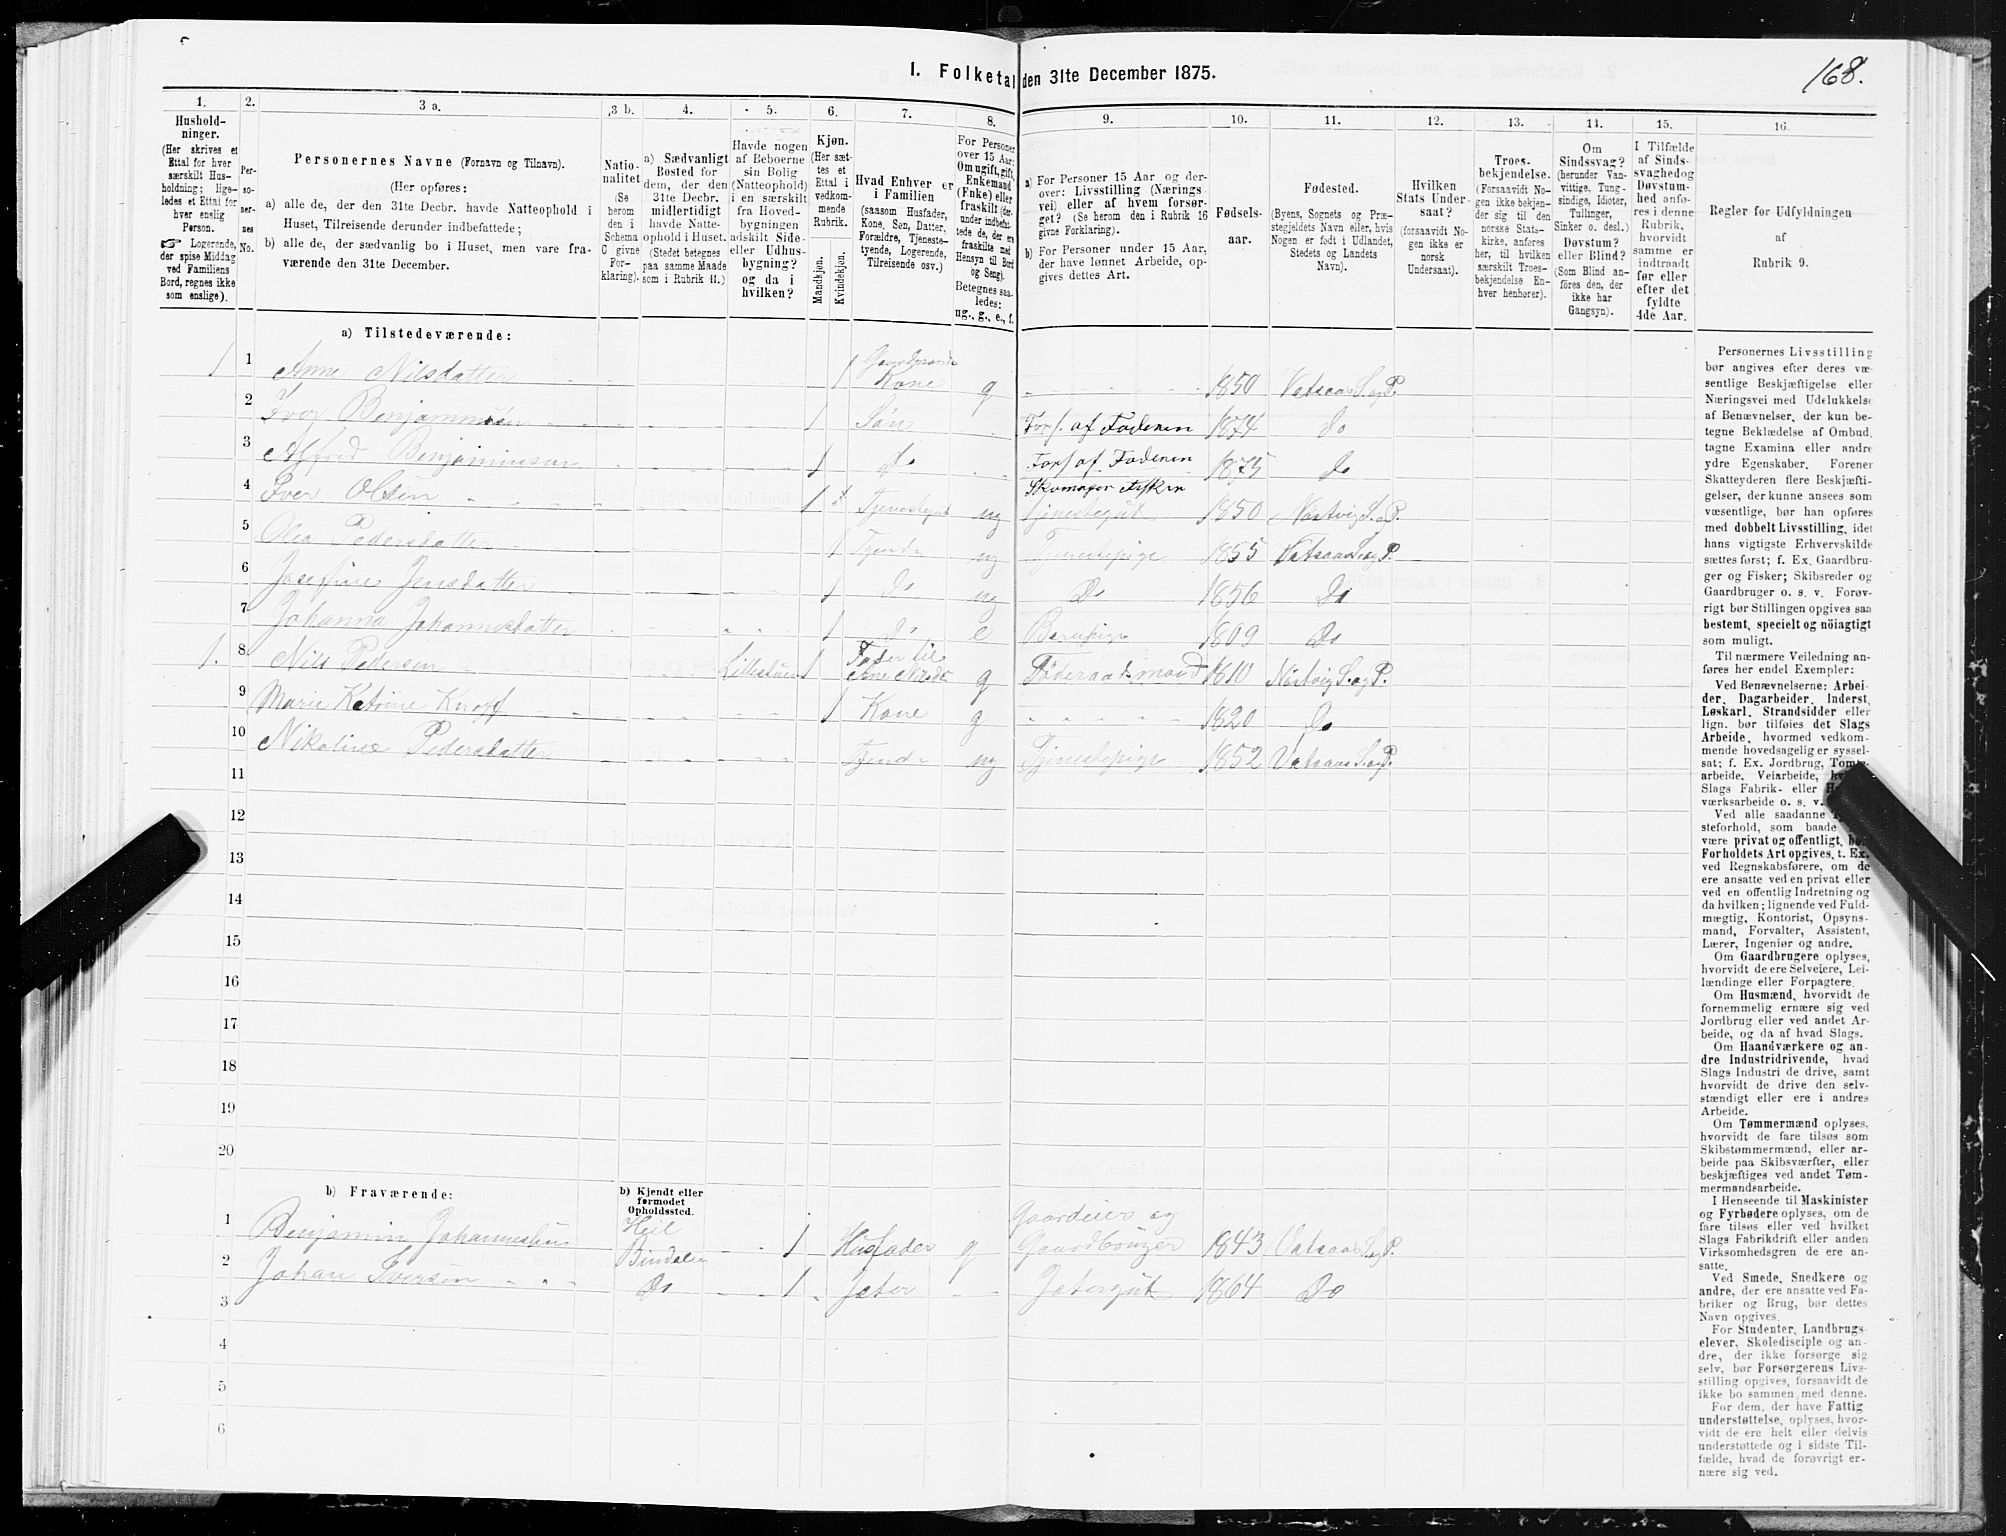 168.
I. Folketal den 31te December 1875.
1.
Hushold-
ninger.
(Her skrives et
Ettal for hver
særskilt Hus-
holdning; lige-
ledes et Ettal for
hver enslig
Person.
Logerende,
der spise Middag
ved Familiens
Bord, regnes ikke
som enslige).
2.
Per-
so-
ner-
nes
No.
3 a.
Personernes Navne (Fornavn og Tilnavn).
(Her opføres:
a) alle de, der den 31te Decbr. havde Natteophold i
Huset, Tilreisende derunder indbefattede;
b) alle de, der sædvanlig bo i Huset, men vare fra-
værende den 31te December.
3 b.
Natio-
nalitet
(Se
herom
den i
Schema
O givne
For-
klaring).
4.
a) Sædvanligt
Bosted for
dem, der den
31te Decbr.
midlertidigt
havde Natte-
ophold i Huset.
(Stedet betegnes
paa samme Maade
som i Rubrik 11.)
5.
Havde nogen
af Beboerne
sin Bolig
(Natteophold)
i en særskilt
fra Hoved-
bygningen
adskilt Side-
eller Udhus-
bygning?
og da i
hvilken?
6.
Kjøn.
(Her sæt-
tes et
Ettal i
vedkom-
mende
Rubrik.
Mandkjøn.
Kvindekjøn.
7.
Hvad Enhver er
i Familien
(saasom Husfader,
Kone, Søn, Datter,
Forældre, Tjeneste-
tyende, Logerende,
Tilreisende osv.)
8.
For Personer
over 15 Aar:
Om ugift, gift,
Enkemand
(Enke) eller
fraskilt (der-
under indbefat-
tede de, der ere
fraskilte med
Hensyn til Bord
og Seng).
Betegnes saa-
ledes:
ug., g., e., f.
9.
a) For Personer 15 Aar og der-
over: Livsstilling (Nærings-
vei) eller af hvem forsør-
get? (Se herom den i Rubrik 16
givne Forklaring).
b) For Personer under 15 Aar,
der have lønnet Arbeide, op-
gives dettes Art.
10.
Fødsels-
aar.
11.
Fødested.
(Byens, Sognets og Præ-
stegjeldets Navn eller, hvis
Nogen er født i Udlandet,
Stedets og Landets
Navn).
12.
Hvilken
Stats Under-
saat?
(forsaavidt No-
gen ikke er
norsk
Undersaat).
13.
Troes-
bekjendelse.
(Forsaavidt No-
gen ikke bekjen-
der sig til den
norske Stats-
kirke, anføres
her, til hvilken
særskilt Troes-
bekjendelse En-
hver henhører).
14.
Om
Sindssvag?
(herunder Van-
vittige, Tung-
sindige, Idioter,
Tullinger,
Sinker o. desl.)
Døvstum?
eller Blind?
(Som Blind an-
føres den, der
ikke har
Gangsyn).
15.
I Tilfælde
af Sinds-
svaghed og
Døvstum-
hed anfø-
res i denne
Rubrik,
hvorvidt
samme er
indtraadt
før eller
efter det
fyldte
4de Aar.
16.
Regler for Udfyldningen
af
Rubrik 9.
a) Tilstedeværende:
1 1 Anne Nilsdatter 1 Gaardmands Kone g 1850 Vatsaas S. og P.
2 Ivor Benjaminsen 1 Søn Fors. af Faderen 1874 Do
3 Alfred Benjaminsen 1 do Fors. af Faderen 1875 Do
4 Iver Olsen 1 Tjenestegut ug Skomager Tjenestegut 1850
5 Olea Pedersdatter 1 Tjende ug Tjenestepige 1855 Vatsaas S. og P.
6 Josefine Jensdatter 1 Do ug Do 1856 Do
7 Johanna Johannesdatter 1 Do e 1809 Do
1. 8 Nils Pedersen Lillestuen 1 Fader til Ane Nilsd. g Föderaadsmand 1810
9 Marie Katrine Knoff 1 Kone g 1820 Do
10 Nikoline Pedersdatter Tjende ug Tjenestepige 1852 Vatsaas S. og P.
11
12
13
14
15
16
17
18
19
20
b) Fraværende:
b) Kjendt eller
formodet
Opholdssted.
1 Benjamin Johannessen Heil Bindalen 1 Husfader g Gaardeier og Gaardbruger 1843 Vatsaas S. og P.
2 Johan Iversen Do 1 Jæter Jætergut 1864 Do
3
4
5
6
Personernes Livsstilling
bør angives efter deres væ-
sentlige Beskjæftigelse eller
Næringsvei med Udelukkelse
af Benævnelser, der kun be-
tegne Beklædelse af Ombud,
tagne Examina eller andre
ydre Egenskaber. Forener
Skatteyderen flere Beskjæfti-
gelser, der kunne ansees som
væsentlige, bør han opføres
med dobbelt Livsstilling, idet
hans vigtigste Erhvervskilde
sættes først; f. Ex. Gaardbru-
ger og Fisker; Skibsreder og
Gaardbruger o. s. v. Forøv-
rigt bør Stillingen opgives saa
bestemt, specielt og nöiagtigt
som muligt.
Til nærmere Veiledning an-
føres her endel Exempler:
Ved Benævnelserne: Arbei-
der, Dagarbeider, Inderst,
Løskarl, Strandsidder eller
lign. bør tilføies det Slags
Arbeide, hvormed vedkom-
mende hovedsagelig er syssel-
sat; f. Ex. Jordbrug, Tomte-
arbeide, Veiarbeide,
Slags Fabrik- eller
værksarbeide o. s. v.
Ved alle saadanne
steforhold, som baade
være privat og offentligt, bør
Forholdets Art opgives, t. Ex.
ved Regnskabsførere, om de
ere ansatte ved en privat eller
ved en offentlig Indretning og
da hvilken; lignende ved Fuld-
mægtig, Kontorist, Opsyns-
mand, Forvalter, Assistent,
Lærer, Ingeniør og andre.
Om Gaardbrugere oplyses,
hvorvidt de ere Selveiere, Lei-
lændinge eller Forpagtere.
Om Husmænd, hvorvidt de
fornemmelig ernære sig ved
Jordbrug eller ved andet Ar-
beide, og da af hvad Slags.
Om Haandværkere og an-
dre Industridrivende, hvad
Slags Industri de drive, samt
hvorvidt de drive den selv-
stændigt eller ere i andres
Arbeide.
Om Tømmermænd oplyses,
hvorvidt de fare tilsøs som
Skibstømmermænd, eller ar-
beide paa Skibsværfter, eller
beskjæftiges ved andet Tøm-
mermandsarbeide.
I Henseende til Maskinister
og Fyrbødere oplyses, om de
fare tilsøs eller ved hvilket
Slags Fabrikdrift eller anden
Virksomhedsgren de ere an-
satte.
Ved Smede, Snedkere og
andre, der ere ansatte ved Fa-
briker og Brug, bør dettes
Navn opgives.
For Studenter, Landbrugs-
elever, Skoledisciple og an-
dre, der ikke forsørge sig
selv, bør Forsørgerens Livs-
stilling opgives, forsaavidt de
ikke bo sammen med denne.
For dem, der have Fattig-
understøttelse, oplyses, hvor-
vidt de ere helt eller delvis
understøttede og i sidste Til-
fælde, hvad de forøvrigt er-
nære sig ved.